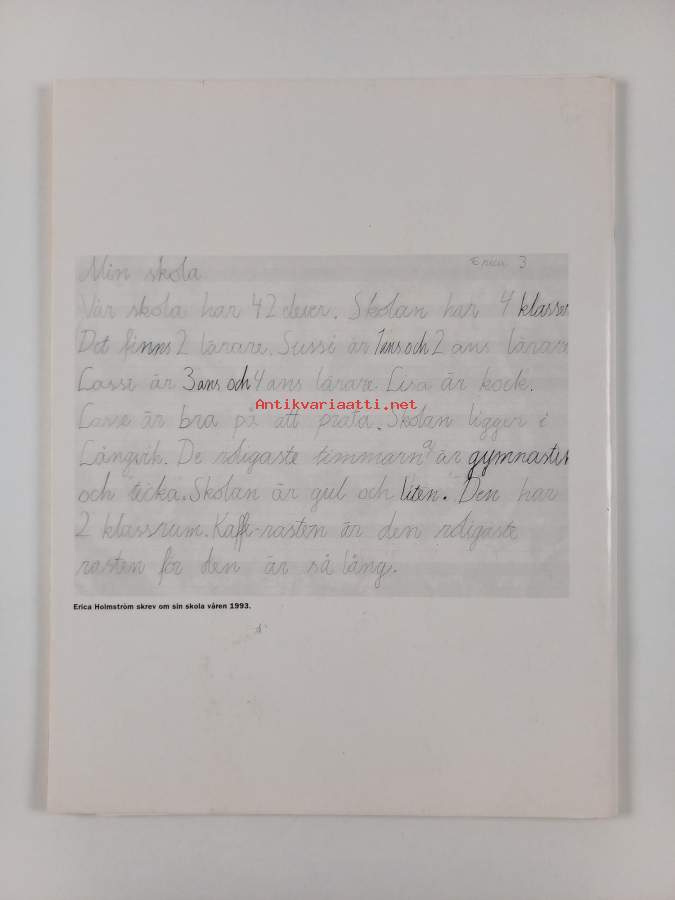 Min skola. Erica 3
Vår skola har 42 elever. Skolan har 4 klasser
Det finns 2 lärare. Sussi är 1 ans och 2 ans lärare
Lasse är 3 ans och 4 ans lärare. Lisa är kock.
Antikvariaatti.net
Lasse är bra på att prata. Skolan ligger i
Långvik. De roligaste timmarna är gymnastik
och teckna. Skolan är gul och liten. Den har
2 klassrum. Kaffe-rasten är den roligaste
rasten för den är så lång.
Erica Holmström skrev om sin skola våren 1993.